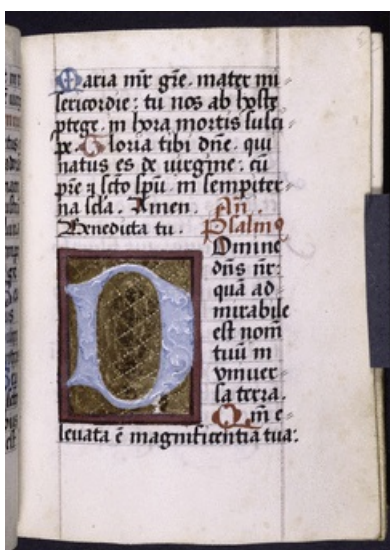 Maria mr̄ grē. mater mi
sericordie: tu nos ab hoste
ptege. in hora mortis susci
pe. Gloria tibi dn̄e. qui
natus es de uirgine: cū
prē ⁊ sct̄o spū. in sempiter
na scl̄a. Amen. An̄.
Benedicta tu. Psalmꝰ
Domine
dn̄s nr̄:
quā ad
mirabile
est nom̄
tuū in
vniuer
sa terra.
Qm̄ e
leuata ē magnificentia tua: